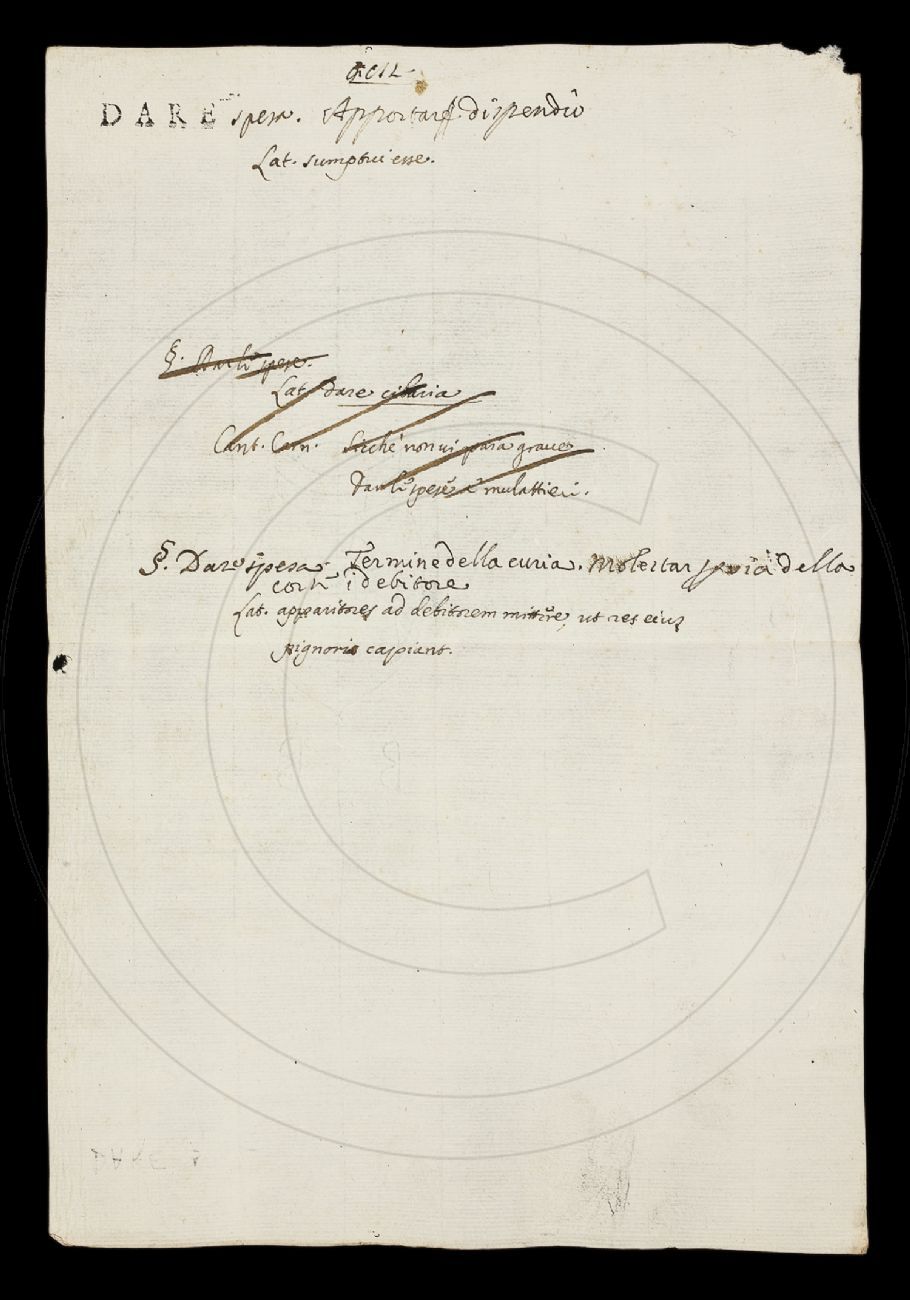 DARE spesa. Apportar dispendio
Lat. sumptui esse.
§. Dar le spese.
Lat. dare cibaria
Cant. Carn. Sicché non vi para grave
Dar le spese a' mulattieri.
§. Dare spesa. Termine della curia. Molestar p via della
corte i debitore
Lat. apparitores ad debitorem mittere, ut res eius
pignoris capiant.